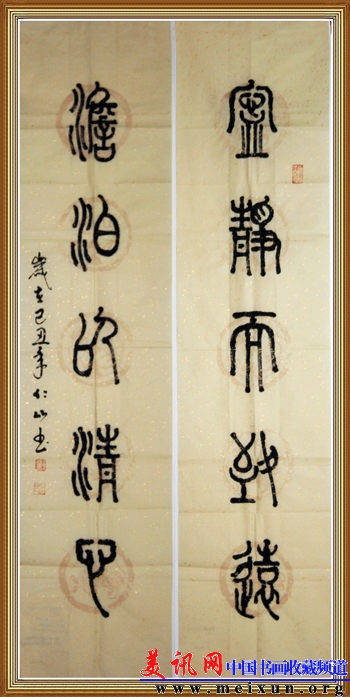 寍靜而致遠
澹泊以清心
歲在己丑年仁山书
美讯网 中国书画收藏频道
www.meixun.org